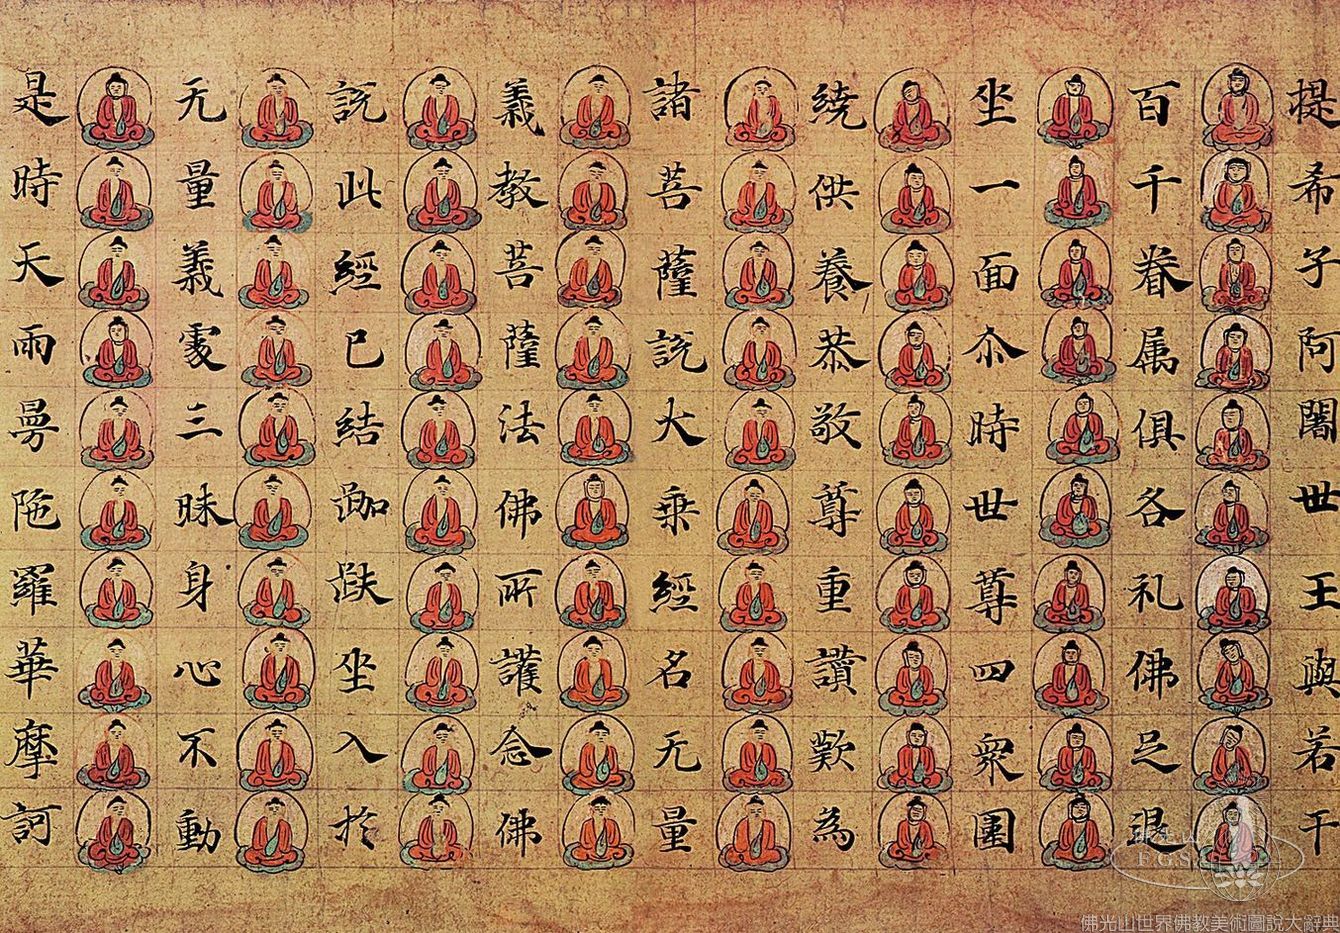 提希子阿闍世王與若干
百千眷属俱各礼佛之退
坐一面尒時世尊四衆圍
繞供養恭敬尊重讃歎為
諸菩薩説大乗經名无量
義教菩薩法佛所護念佛
説此經已結跏趺坐入扵
无量義處三昧身心不動
是時天雨曼陁羅華摩訶
FGS
佛光山世界佛教美術圖說大辭典